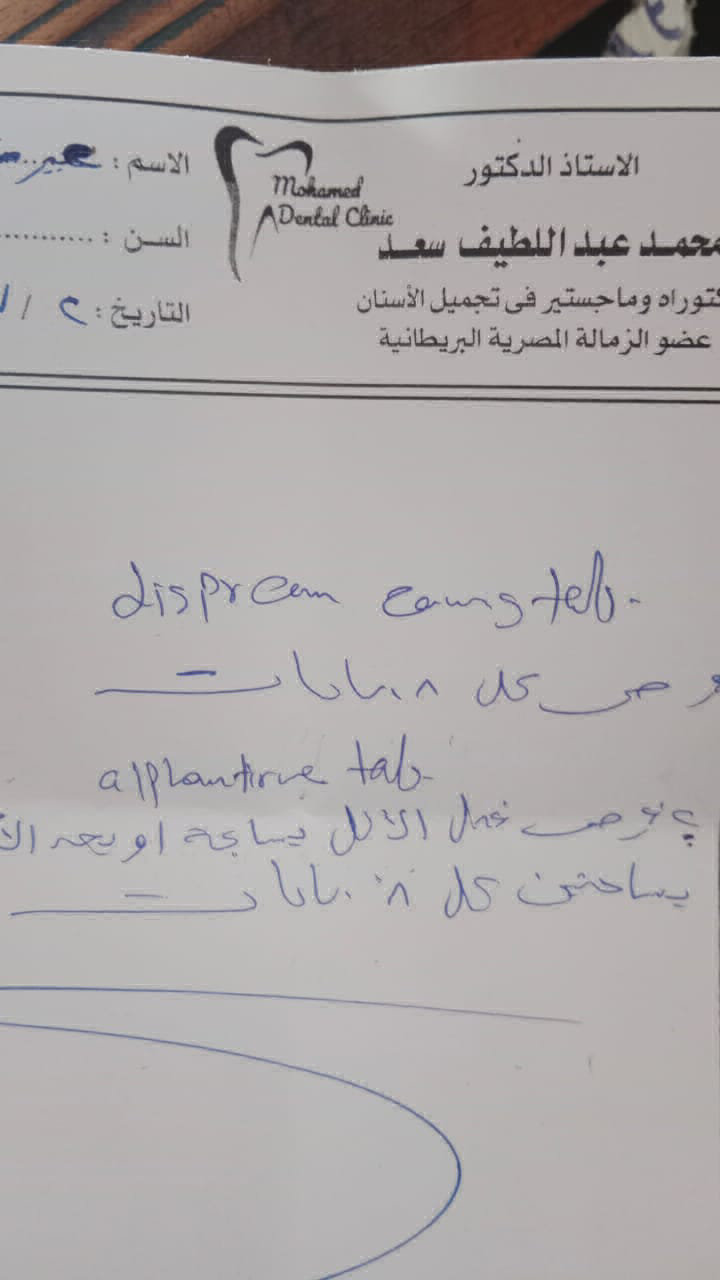 الاستاذ الدكتور
محمد عبد اللطيف سعد
كتوراه وماجستير فى تجميل الأسنان
عضو الزمالة المصرية البريطانية
Mohamed
Dental Clinic
الاسم : عبير
السن :
التاريخ : ٢ /
dispream tab.
قرص كل ٨ ساعات
tab.
قرص قبل الاكل بساعة او بعد الأ
بساعتين كل ٨ ساعات